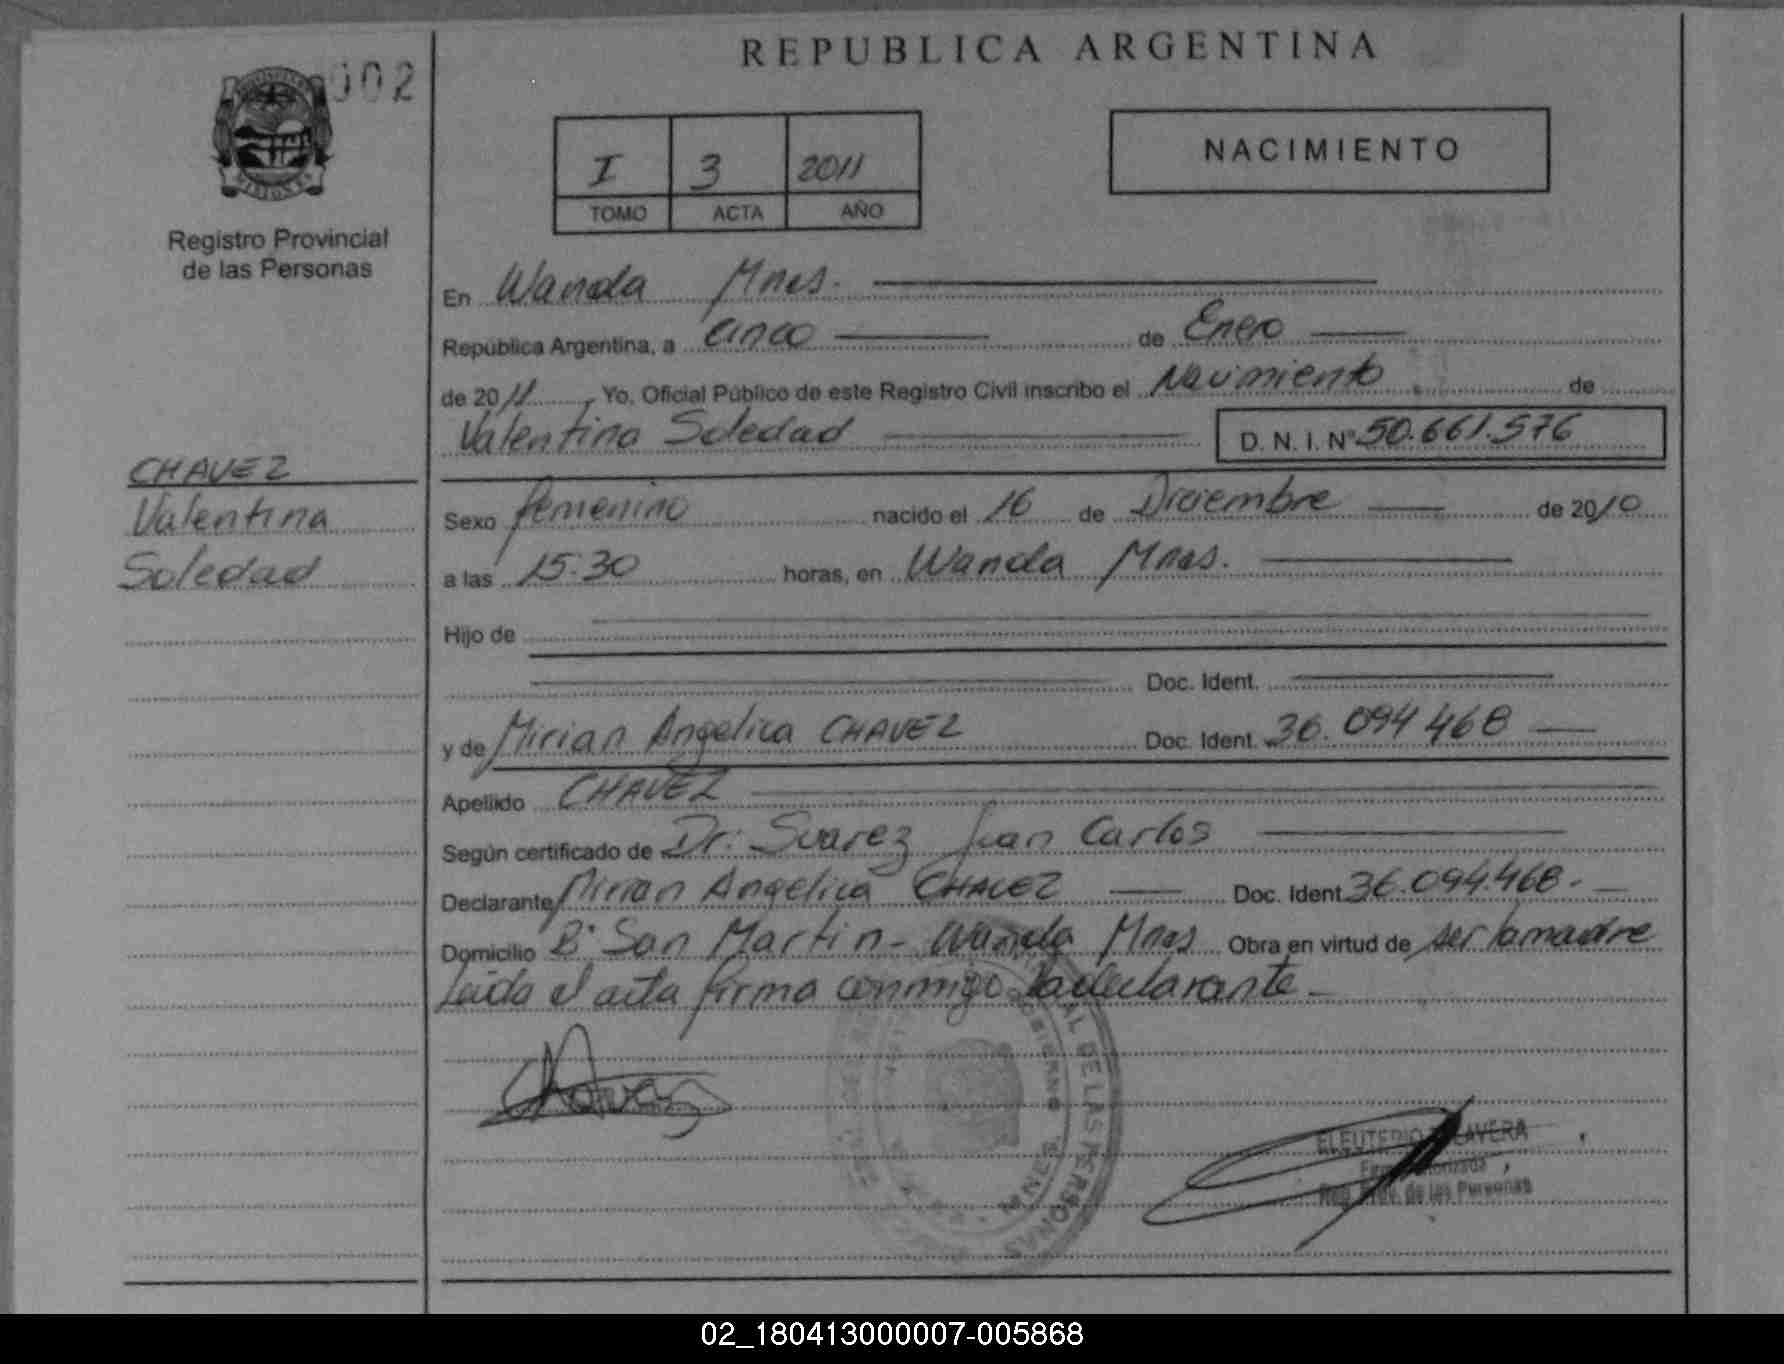 REPUBLICA ARGENTINA
002
MISIONES
Registro Provincial
de las Personas
I 3 2011
TOMO ACTA AÑO
NACIMIENTO
CHAVEZ
Valentina
Soledad
En Wanda Mnes.
República Argentina, a cinco de Enero
de 2011, Yo, Oficial Público de este Registro Civil inscribo el Nacimiento de
Valentina Soledad D. N. I. Nº 50.661.576
Sexo femenino nacido el 16 de Diciembre de 2010
a las 15:30 horas, en Wanda Mnes.
Hijo de
Doc. Ident.
y de Mirian Angelica CHAVEZ Doc. Ident. 36.094 468
Apellido CHAVEZ
Según certificado de Dr: Suarez Juan Carlos
Declarante Mirian Angelica CHAVEZ Doc. Ident. 36.094.468.
Domicilio Bº San Martin - Wanda Mnes Obra en virtud de ser la madre
Leída el acta firma conmigo la declarante -
Chavez
DE LAS PERSONAS
ELEUTERIO TALAVERA
Firma Autorizada
Reg. Prov. de las Personas
02_180413000007-005868